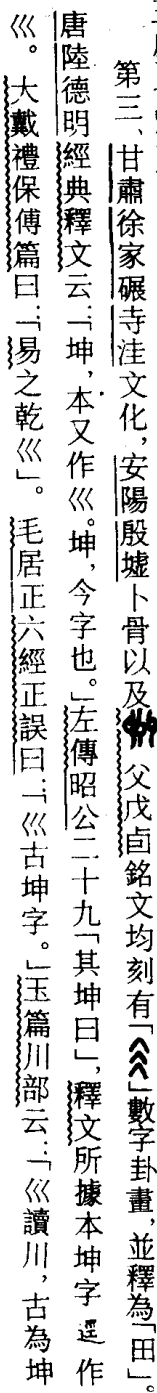 第三、甘肅徐家碾寺洼文化，安陽殷墟卜骨以及父戊卣銘文均刻有「𠔃」數字卦畫，並釋為「田」。
唐陸德明經典釋文云：「坤，本又作巛。坤，今字也。」左傳昭公二十九「其坤曰」，釋文所據本坤字逕作
巛。大戴禮保傅篇曰：「易之乾巛」。毛居正六經正誤曰：「巛古坤字。」玉篇川部云：「巛讀川，古為坤